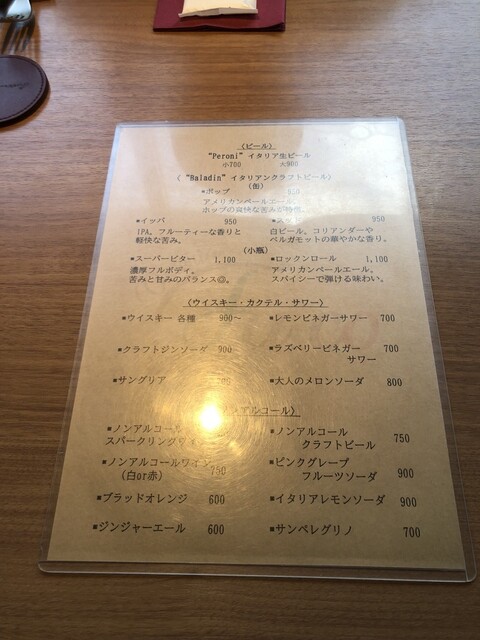 〈ビール〉
"Peroni" イタリア生ビール
小700 大900
〈"Baladin" イタリアンクラフトビール〉
(缶)
▪ポップ 850
アメリカンペールエール。
ホップの良快な苦みが特徴。
▪イッパ 950
950
IPA。フルーティーな香りと
軽快な苦み。
白ビール。コリアンダーや
ベルガモットの華やかな香り。
(小瓶)
▪スーパービター 1,100
▪ロックンロール 1,100
濃厚フルボディ。
苦みと甘みのバランス◎。
アメリカンペールエール。
スパイシーで弾ける味わい。
〈ウイスキー・カクテル・サワー〉
▪ウイスキー 各種 900～
▪レモンビネガーサワー 700
▪クラフトジンソーダ 900
▪ラズベリービネガー
サワー 700
▪サングリア
▪大人のメロンソーダ 800
ンアルコール〉
▪ノンアルコール
スパークリングワイ
▪ノンアルコール
クラフトビール 750
▪ノンアルコールワイン
(白or赤) 750
▪ピンクグレープ
フルーツソーダ 900
▪ブラッドオレンジ 600
▪イタリアレモンソーダ 900
▪ジンジャーエール 600
▪サンペレグリノ 700